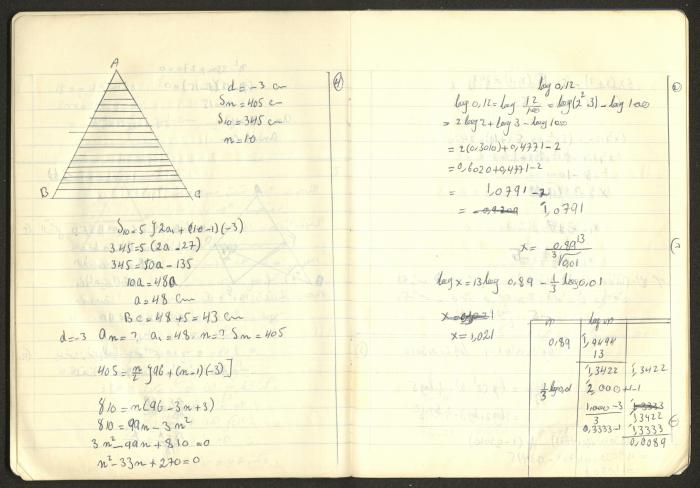 A
B
d = -3 cm
Sn = 405 c
S10 = 345 c
n = 10
S10 = 5 [2a1 + (10-1)(-3)
345 = 5 (2a - 27)
345 = 10a - 135
10a = 480
a = 48 cm
Bc = 48 + 5 = 43 cm
d = -3 an = ?, a1 = 48 n = ? Sn = 405
405 = n/2 [96 + (n-1)(-3)]
810 = n(96 - 3n + 3)
810 = 99n - 3n²
3n² - 99n + 810 = 0
n² - 33n + 270 = 0
log 0,12
log 0,12 = log 12/100 = log(2² 3) - log 100
= 2 log 2 + log 3 - log 100
= 2(0,3010) + 0,4771 - 2
= 0,6020 + 0,4771 - 2
= 1,0791 - 2
= 1̄,0791
x = 0,89¹³ / ³√0,01
log x = 13 log 0,89 - 1/3 log 0,01
x = 1,021
n log n
0,89 1̄,9494
13
1̄,3422 1̄,3422
1/3 log 0,01 2̄,000 + 1 - 1
1,000 - 3 / 3 1̄,3422
0,3333 - 1 1̄,3333
0,0089